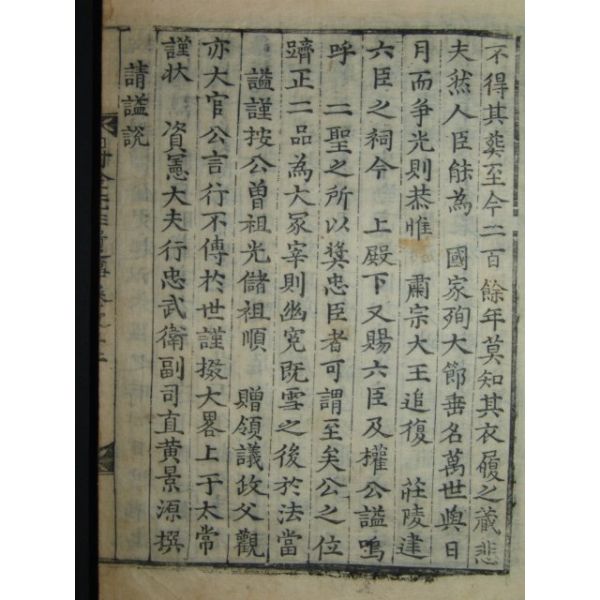 不得其葬至今二百餘年莫知其衣履之藏悲
夫然人臣能為 國家殉大節垂名萬世與日
月而争光則恭惟 肅宗大王追復 莊陵建
六臣之祠今 上殿下又賜六臣及權公謚嗚
呼 二聖之所以奬忠臣者可謂至矣公之位
躋正二品為大冢宰則幽寃既雪之後於法當
謚謹按公曽祖光儲祖順 贈領議政父觀
亦大官公言行不傳於世謹掇大畧上于太常
謹状 資憲大夫行忠武衛副司直黄景源撰
請謚説